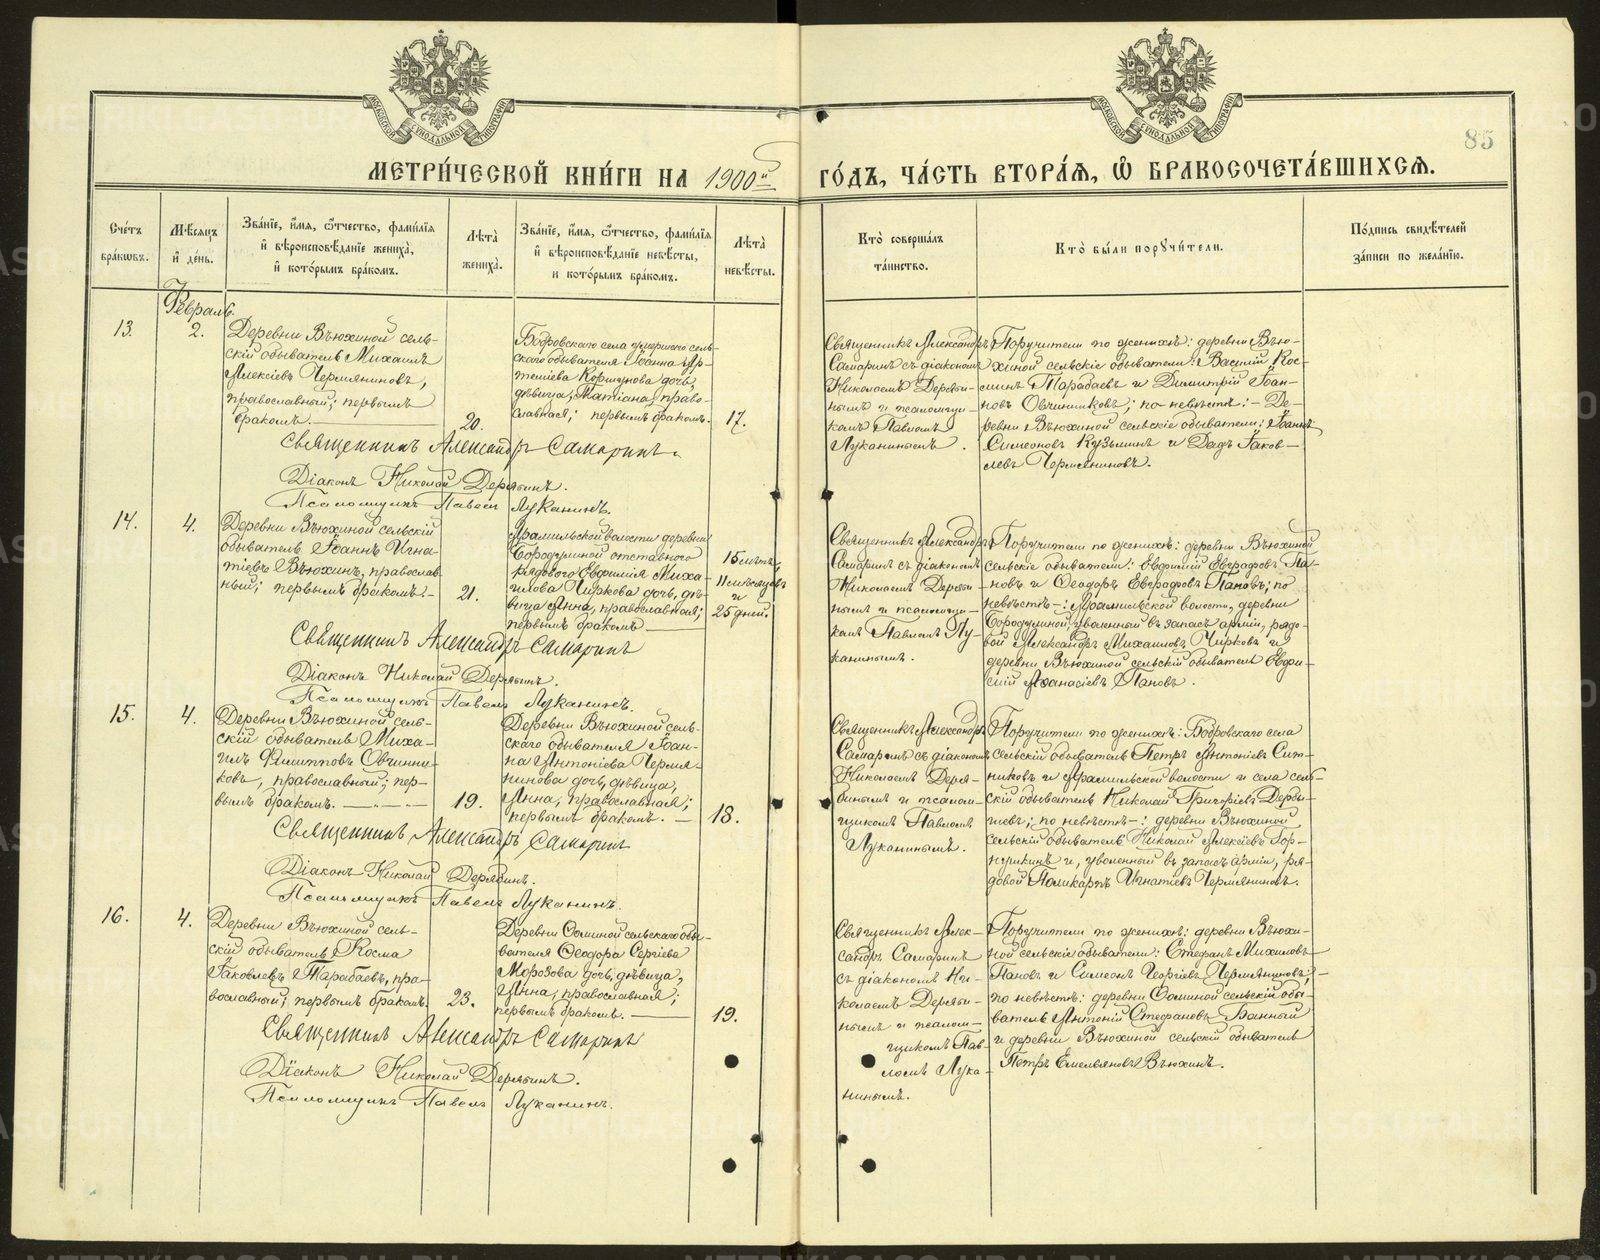 МЕТРИ́ЧЕСКОЙ КНИ́ГИ НА 1900й ГО́ДЪ, ЧА́СТЬ ВТОРА́Я, Ѡ҆ БРАКОСОЧЕТА́ВШИХСЯ.
85
Сче́тъ бра́ковъ.
Мѣ́сяцъ и҆ де́нь.
Зва́нїе, и҆́мя, ѻ҆́тчество, фами́лїя
и҆ вѣроисповѣ́данїе жениха̀,
и҆ кото́рымъ бра́комъ.
Лѣ́та жениха̀.
Зва́нїе, и҆́мя, ѻ҆́тчество, фами́лїя
и҆ вѣроисповѣ́данїе невѣ́сты,
и҆ кото́рымъ бра́комъ.
Лѣ́та невѣ́сты.
Кто̀ соверша́лъ
та́инство.
Кто̀ бы́ли поручи́тели.
По́дпись свидѣ́телей
за́писи по жела́нїю.
Февраль.
13.
2.
Деревни Вьюхиной сель-
скій обыватель Михаилъ
Алексіевъ Чермяниновъ,
православный; первымъ
бракомъ.
20.
Бобровскаго села умершаго сель-
скаго обывателя Іоанна Ар-
теміева Коршунова дочь,
дѣвица, Татіана, право-
славная; первымъ бракомъ.
17.
Священникъ Александръ
Самаринъ съ діакономъ
Николаемъ Деряби-
нымъ и псаломщи-
комъ Павломъ
Луканинымъ.
Поручители по женихѣ: деревни Вью-
хиной сельскіе обыватели: Василій Кос-
минъ Тарабаевъ и Димитрій Іоан-
новъ Овчинниковъ; по невѣстѣ: Де-
ревни Вьюхиной сельскіе обыватели: Іоаннъ
Симеоновъ Кузьминъ и Дадъ Іаков-
левъ Чермяниновъ.
Священникъ Александръ Самаринъ.
Діаконъ Николай Дерябинъ.
Псаломщикъ Павелъ Луканинъ.
14.
4.
Деревни Вьюхиной сельскій
обыватель Іоаннъ Игна-
тіевъ Вьюхинъ, православ-
ный; первымъ бракомъ.
21.
Арамильской волости деревни
Бородулиной отставного
рядового Евфимія Миха-
илова Чиркова дочь, дѣ-
вица Анна, православная;
первымъ бракомъ
15 лѣтъ,
11 мѣсяцевъ
и
25 дней.
Священникъ Александръ
Самаринъ съ діакономъ
Николаемъ Деряби-
нымъ и псаломщи-
комъ Павломъ Лу-
канинымъ.
Поручители по женихѣ: деревни Вьюхиной
сельскіе обыватели: Евфимій Евграфовъ Па-
новъ и Ѳеодоръ Евграфовъ Пановъ; по
невѣстѣ: Арамильской волости, деревни
Бородулиной, уволенный въ запасъ арміи, рядо-
вой Александръ Михаиловъ Чирковъ и
деревни Вьюхиной сельскій обыватель Евфи-
мій Аѳанасіевъ Пановъ.
Священникъ Александръ Самаринъ
Діаконъ Николай Дерябинъ.
Псаломщикъ Павелъ Луканинъ.
15.
4.
Деревни Вьюхиной сель-
скій обыватель Миха-
илъ Филипповъ Овчинни-
ковъ, православный; пер-
вымъ бракомъ.
19.
Деревни Вьюхиной сель-
скаго обывателя Іоан-
на Антоніева Чермя-
нинова дочь, дѣвица,
Анна, православная;
первымъ бракомъ.
18.
Священникъ Александръ
Самаринъ съ діакономъ
Николаемъ Деря-
бинымъ и псалом-
щикомъ Павломъ
Луканинымъ.
Поручители по женихѣ: Бобровскаго села
сельскій обыватель Петръ Антоніевъ Сит-
никовъ и Арамильской волости и села сель-
скій обыватель Николай Григоріевъ Дербы-
шевъ; по невѣстѣ: деревни Вьюхиной
сельскій обыватель Николай Алексіевъ Гор-
нушкинъ и, уволенный въ запасъ арміи, ря-
довой Поликарпъ Игнатіевъ Чермяниновъ.
Священникъ Александръ Самаринъ
Діаконъ Николай Дерябинъ.
Псаломщикъ Павелъ Луканинъ.
16.
4.
Деревни Вьюхиной сель-
скій обыватель Косма
Іаковлевъ Тарабаевъ, пра-
вославный; первымъ бракомъ.
23.
Деревни Ѳоминой сельскаго обы-
вателя Ѳеодора Сергіева
Морозова дочь, дѣвица,
Анна, православная;
первымъ бракомъ.
19.
Священникъ Алек-
сандръ Самаринъ
съ діакономъ Ни-
колаемъ Деряби-
нымъ и псалом-
щикомъ Пав-
ломъ Лука-
нинымъ.
Поручители по женихѣ: деревни Вьюхи-
ной сельскіе обыватели: Стефанъ Михаиловъ
Пановъ и Симеонъ Георгіевъ Чермяниновъ;
по невѣстѣ: деревни Ѳоминой сельскій обы-
ватель Антоній Стефановъ Банный
и деревни Вьюхиной сельскій обыватель
Петръ Емельяновъ Вьюхинъ.
Священникъ Александръ Самаринъ
Діаконъ Николай Дерябинъ.
Псаломщикъ Павелъ Луканинъ.